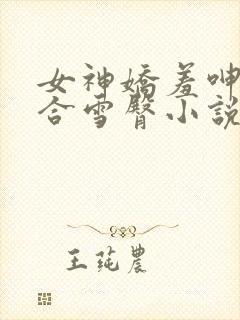 女神嬌羞呻
合雪臀小說
王莼農